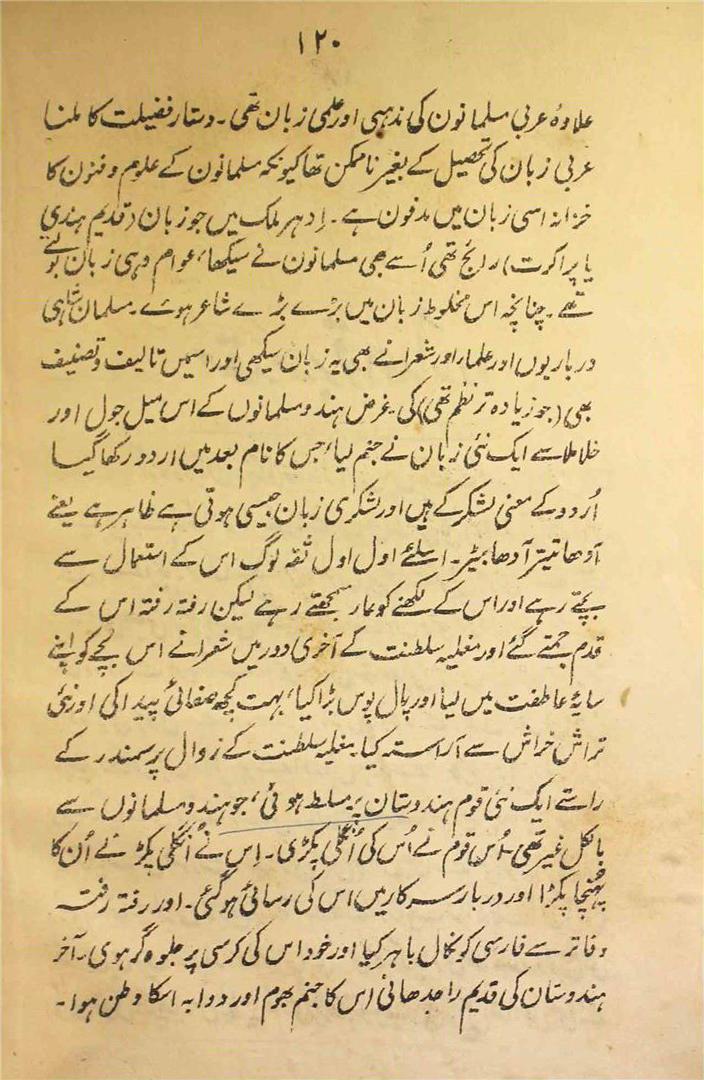 ۱۲۰
علاوہ عربی مسلمانون کی مذہبی اور علمی زبان تھی۔ دستار فضیلت کا ملنا
عربی زبان کی تحصیل کے بغیر ناممکن تھا کیونکہ مسلمانون کے علوم و فنون کا
خزانہ اسی زبان میں مدفون ہے۔ اِدہر ملک میں جو زبان (قدیم ہندی
یا پراکوت) رائج تھی اُسے بھی مسلمانون نے سیکھا، عوام وہی زبان بولتے
تھے۔ چنانچہ اس مخلوط زبان میں بڑے بڑے شاعر ہوے۔ مسلمان شاہی
درباریوں اور علما اور شعرا نے بھی یہ زبان سیکھی اور اسمیں تالیف و تصنیف
بھی (جو زیادہ تر نظم تھی) کی۔ غرض ہندو مسلمانوں کے اس میل جول اور
خلا ملا سے ایک نئی زبان نے جنم لیا، جس کا نام بعد میں اردو رکھا گیا
اُردو کے معنی لشکر کے ہیں اور لشکری زبان جیسی ہوتی ہے ظاہر ہے یعنے
آدھا تیتر آدھا بٹیر۔ اسلئے اول اول ثقہ لوگ اس کے استعمال سے
بچتے رہے اور اس کے لکھنے کو عار سمجھتے رہے لیکن رفتہ رفتہ اس کے
قدم جمتے گئے اور مغلیہ سلطنت کے آخری دور میں شعرا نے اس بچے کو اپنے
سایۂ عاطفت میں لیا اور پال پوس بڑا کیا، بہت کچھ صفائی پیدا کی اور نئی
تراش خراش سے آراستہ کیا۔ مغلیہ سلطنت کے زوال پر سمندر کے
راستے ایک نئی قوم ہندوستان پر مسلط ہوئی، جو ہندو مسلمانوں سے
بالکل غیر تھی۔ اُس قوم نے اُس کی اُنگلی پکڑی۔ اِس نے اُنگلی پکڑتے اُن کا
پہُنچا پکڑا اور دربار سرکار میں اس کی رسائی ہوگئی۔ اور رفتہ رفتہ
دفاتر سے فارسی کو نکال باہر کیا اور خود اس کی کرسی پر جلوہ گر ہوی۔ آخر
ہندوستان کی قدیم راجدھانی اس کا جنم بھوم اور دوابہ اسکا وطن ہوا۔